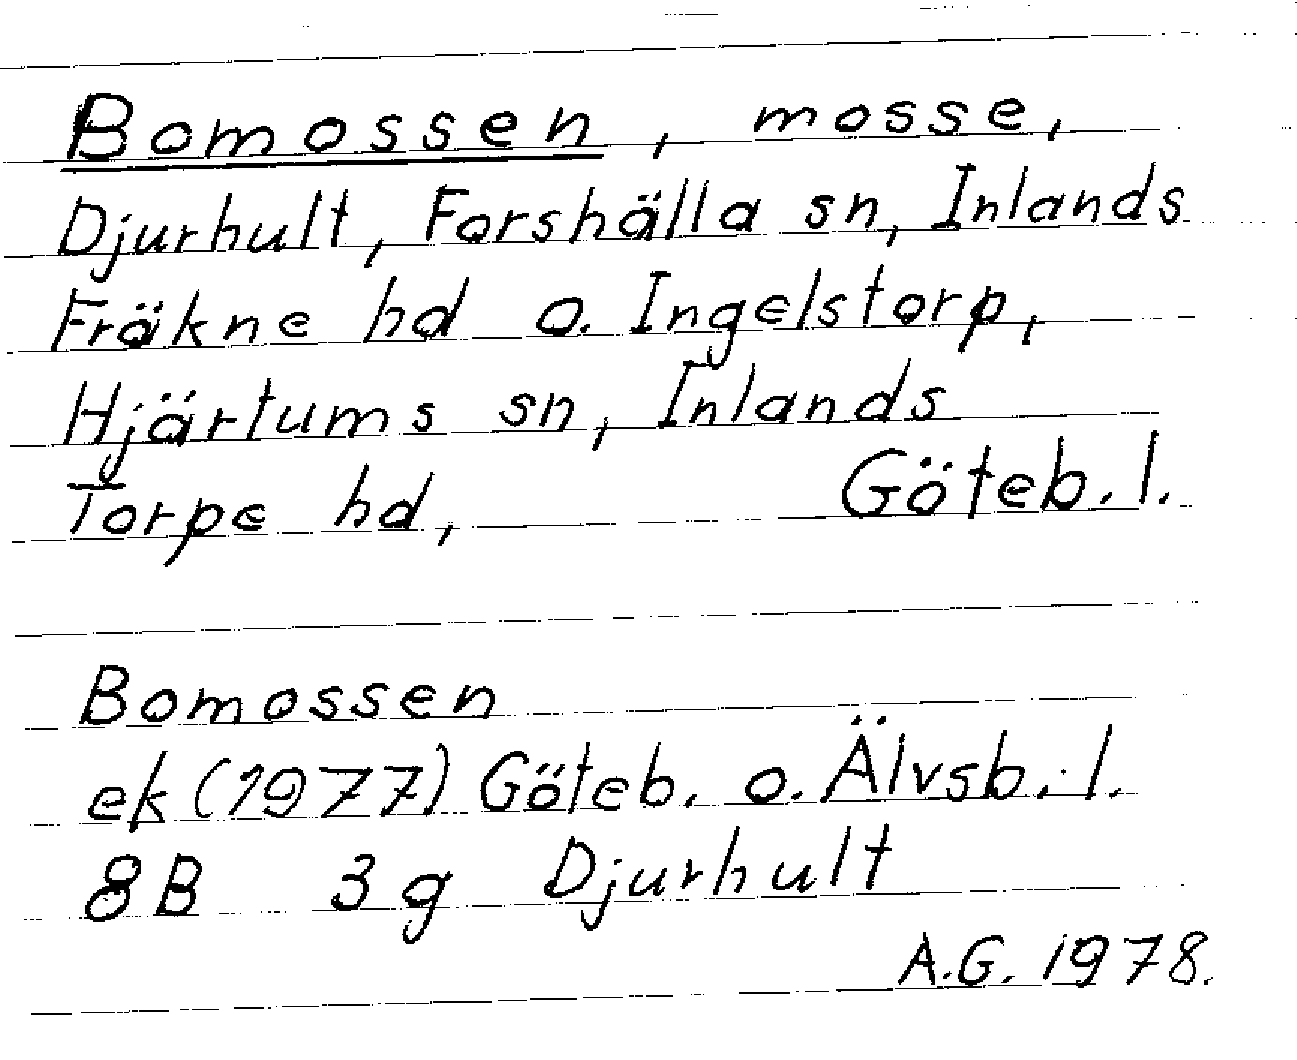 Bomossen, mosse,
Djurhult, Forshälla sn, Inlands
Fräkne hd o. Ingelstorp,
Hjärtums sn, Inlands
Torpe hd, Göteb. l.
Bomossen
ek (1977) Göteb. o. Älvsb. l.
8B 3g Djurhult
A.G. 1978.